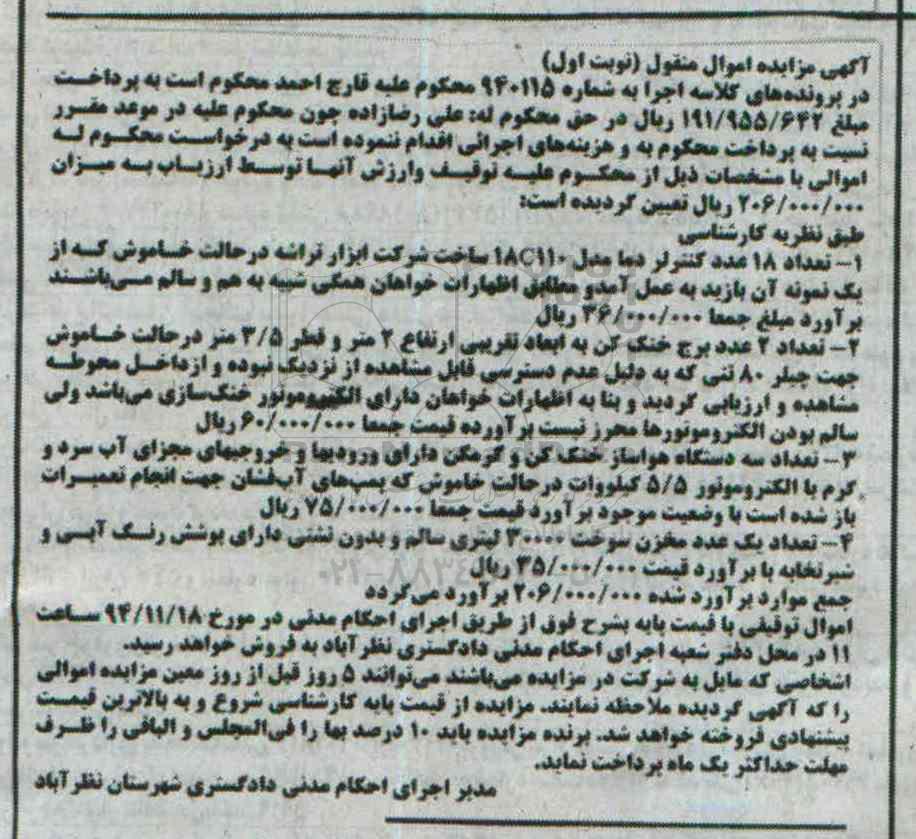 آگهی مزایده اموال منقول (نوبت اول)
در پرونده‌های کلاسه اجرا به شماره ۹۴۰۱۱۵ محکوم علیه قارچ احمد محکوم است به پرداخت
مبلغ ۱۹۱/۹۵۵/۶۴۲ ریال در حق محکوم له: علی رضازاده چون محکوم علیه در موعد مقرر
نسبت به پرداخت محکوم به و هزینه‌های اجرائی اقدام ننموده است به درخواست محکوم له
اموالی با مشخصات ذیل از محکوم علیه توقیف وارزش آنها توسط ارزیاب به میزان
۲۰۶/۰۰۰/۰۰۰ ریال تعیین گردیده است:
طبق نظریه کارشناسی
۱- تعداد ۱۸ عدد کنترلر دما مدل ۱۸C۱۱۰ ساخت شرکت ابزار تراشه درحالت خاموش که از
یک نمونه آن بازید به عمل آمدو مطابق اظهارات خواهان همگی شبیه به هم و سالم می‌باشند
برآورد مبلغ جمعا ۳۶/۰۰۰/۰۰۰ ریال
۲- تعداد ۲ عدد برج خنک کن به ابعاد تقریبی ارتفاع ۲ متر و قطر ۳/۵ متر درحالت خاموش
جهت چیلر ۸۰ تنی که به دلیل عدم دسترسی قابل مشاهده از نزدیک نبوده و ازداخل محوطه
مشاهده و ارزیابی گردید و بنا به اظهارات خواهان دارای الکتروموتور خنک‌سازی می‌باشد ولی
سالم بودن الکتروموتورها محرز نیست برآورده قیمت جمعا ۶۰/۰۰۰/۰۰۰ ریال
۳- تعداد سه دستگاه هواساز خنک کن و گرمکن دارای ورودیها و خروجیهای مجزای آب سرد و
گرم با الکتروموتور ۵/۵ کیلووات درحالت خاموش که پمپ‌های آب‌فشان جهت انجام تعمیرات
باز شده است با وضعیت موجود برآورد قیمت جمعا ۷۵/۰۰۰/۰۰۰ ریال
۴- تعداد یک عدد مخزن سوخت ۳۰۰۰۰ لیتری سالم و بدون نشتی دارای پوشش رنگ آبی و
شیرتخلیه با برآورد قیمت ۳۵/۰۰۰/۰۰۰ ریال
جمع موارد برآورد شده ۲۰۶/۰۰۰/۰۰۰ برآورد می‌گردد
اموال توقیفی با قیمت پایه بشرح فوق از طریق اجرای احکام مدنی در مورخ ۹۴/۱۱/۱۸ ساعت
۱۱ در محل دفتر شعبه اجرای احکام مدنی دادگستری نظرآباد به فروش خواهد رسید.
اشخاصی که مایل به شرکت در مزایده می‌باشند می‌توانند ۵ روز قبل از روز معین مزایده اموالی
را که آگهی گردیده ملاحظه نمایند. مزایده از قیمت پایه کارشناسی شروع و به بالاترین قیمت
پیشنهادی فروخته خواهد شد. برنده مزایده باید ۱۰ درصد بها را فی‌المجلس و الباقی را ظرف
مهلت حداکثر یک ماه پرداخت نماید.
مدیر اجرای احکام مدنی دادگستری شهرستان نظرآباد